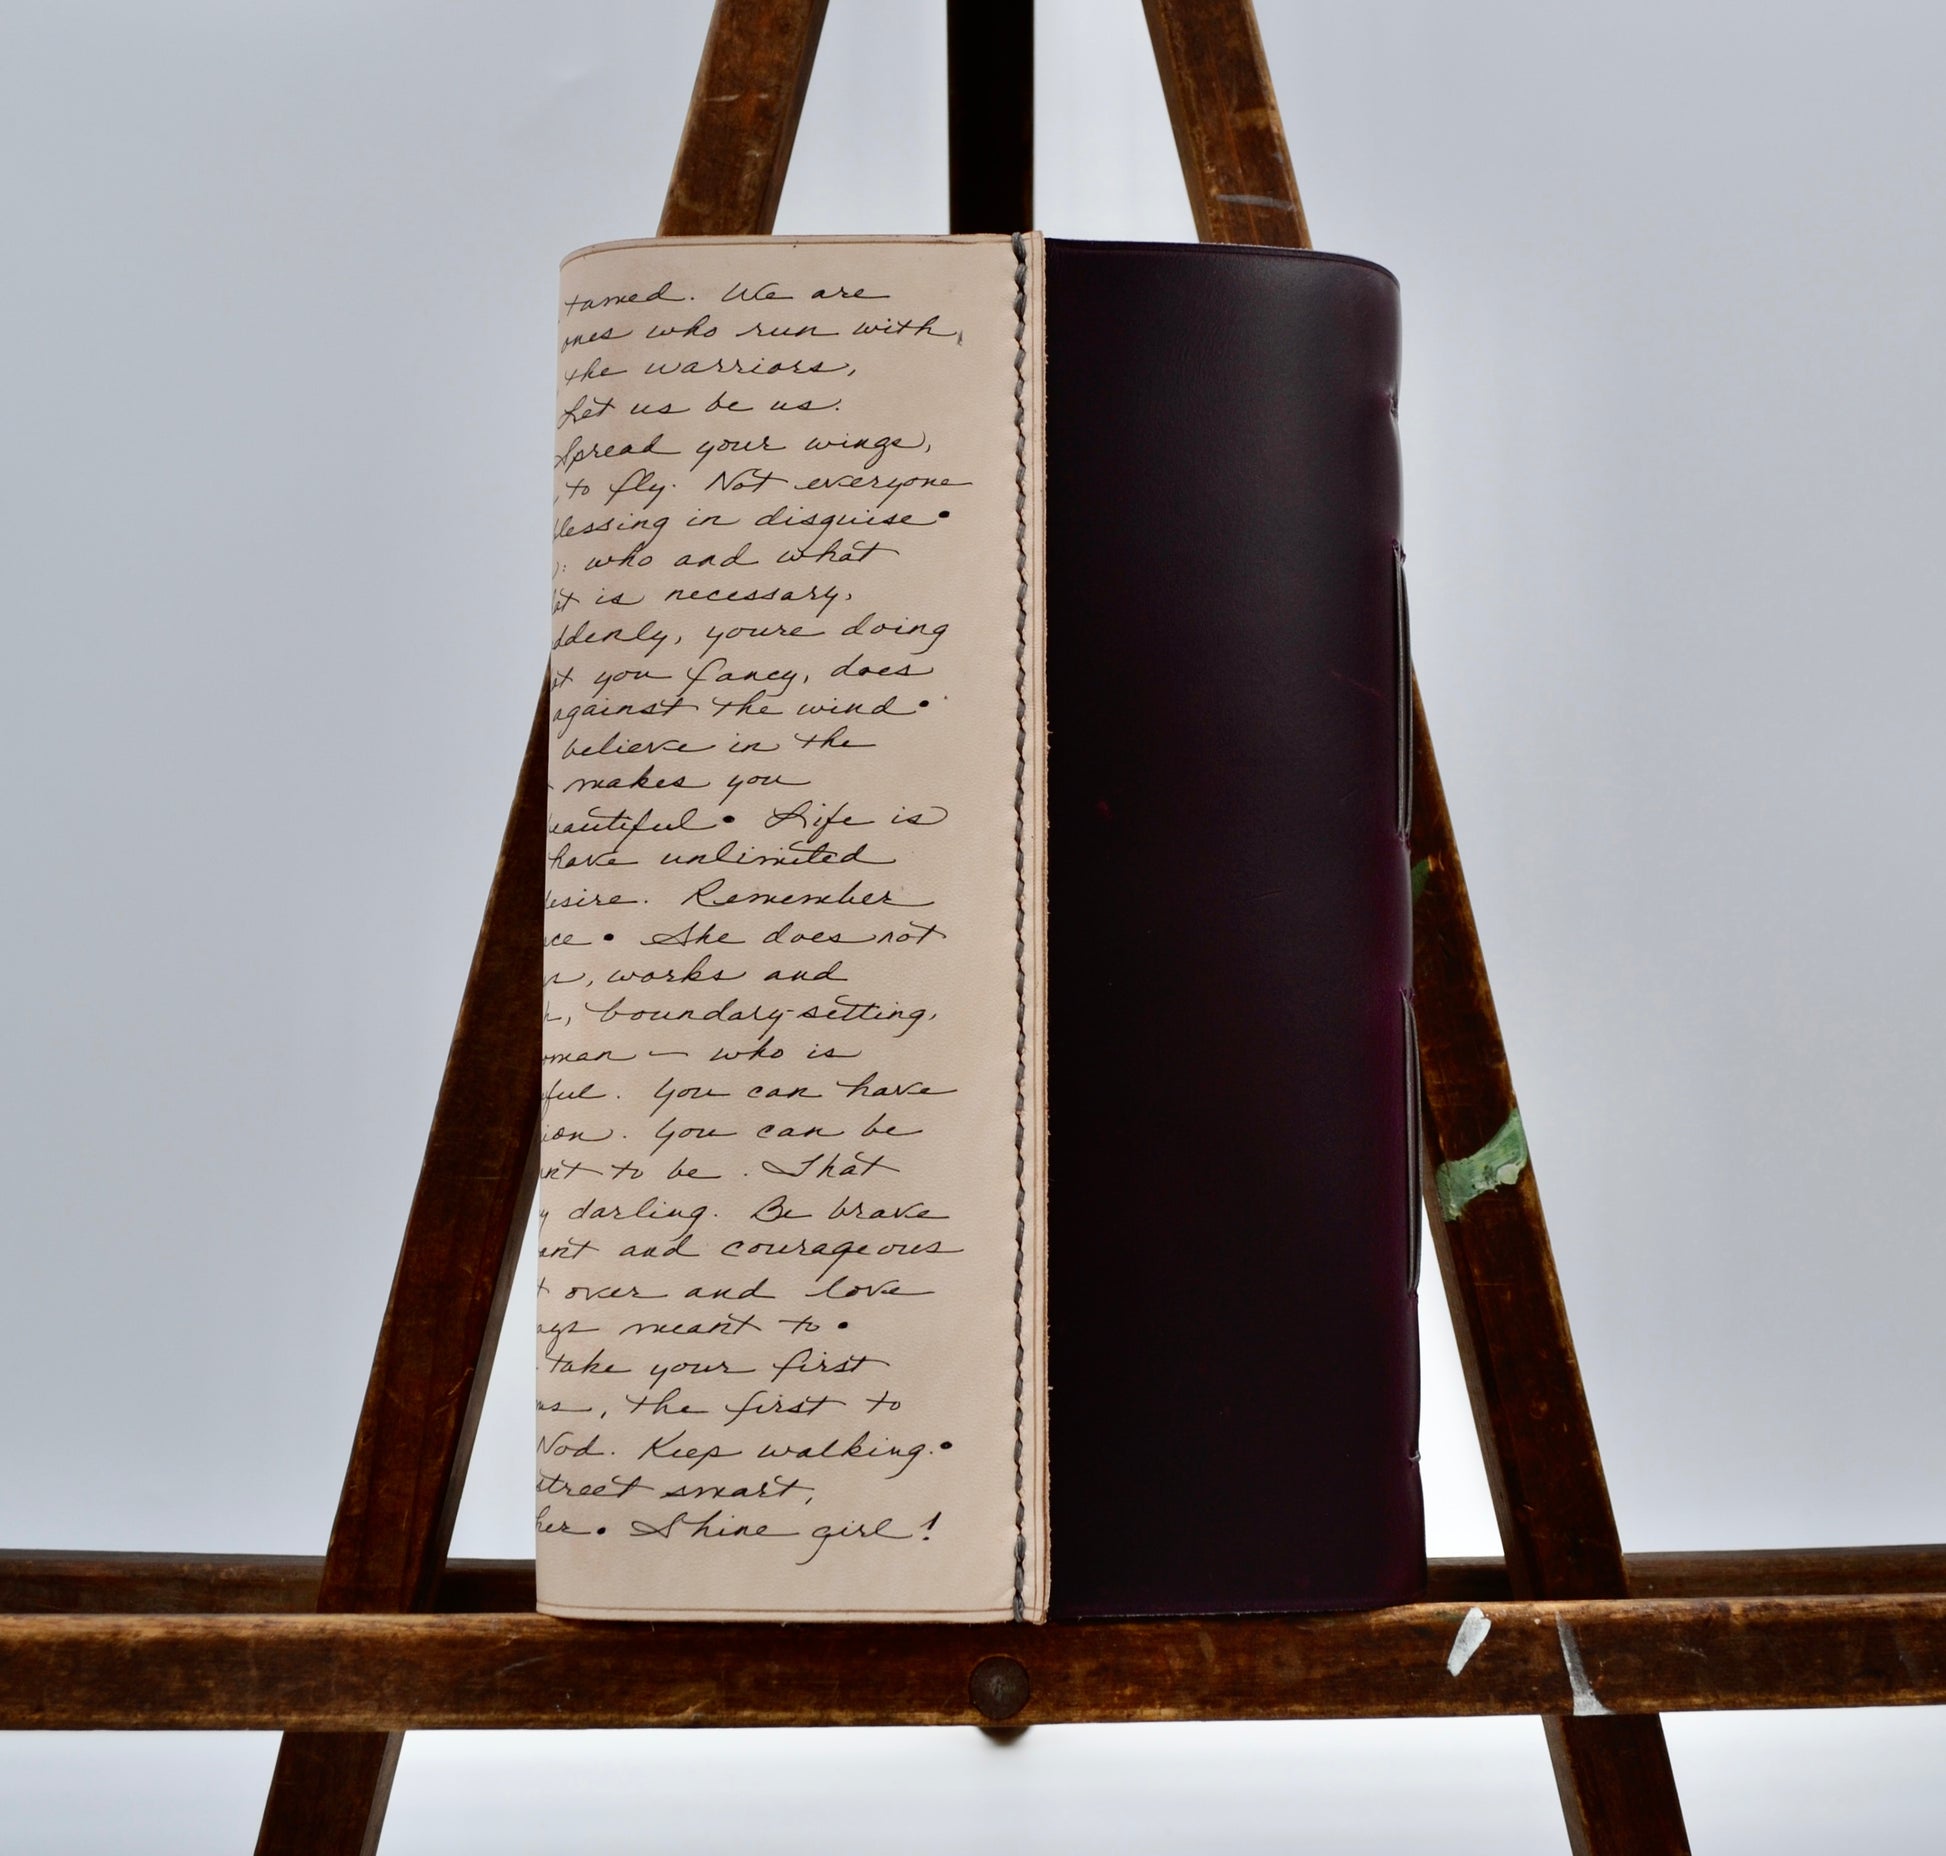 tamed. We are
ones who run with,
the warriors,
Let us be us.
Spread your wings,
to fly. Not everyone
lessing in disguise •
who and what
at is necessary,
ddenly, youre doing
at you fancy, does
against the wind •
believe in the
makes you
eautiful • Life is
have unlimited
esire. Remember
ce • She does not
, works and
h, boundary-setting,
oman — who is
ful. You can have
ion. You can be
nt to be. That
y darling. Be brave
ant and courageous
t over and love
ays meant to •
take your first
ms, the first to
Nod. Keep walking. •
street smart,
her • Shine girl!